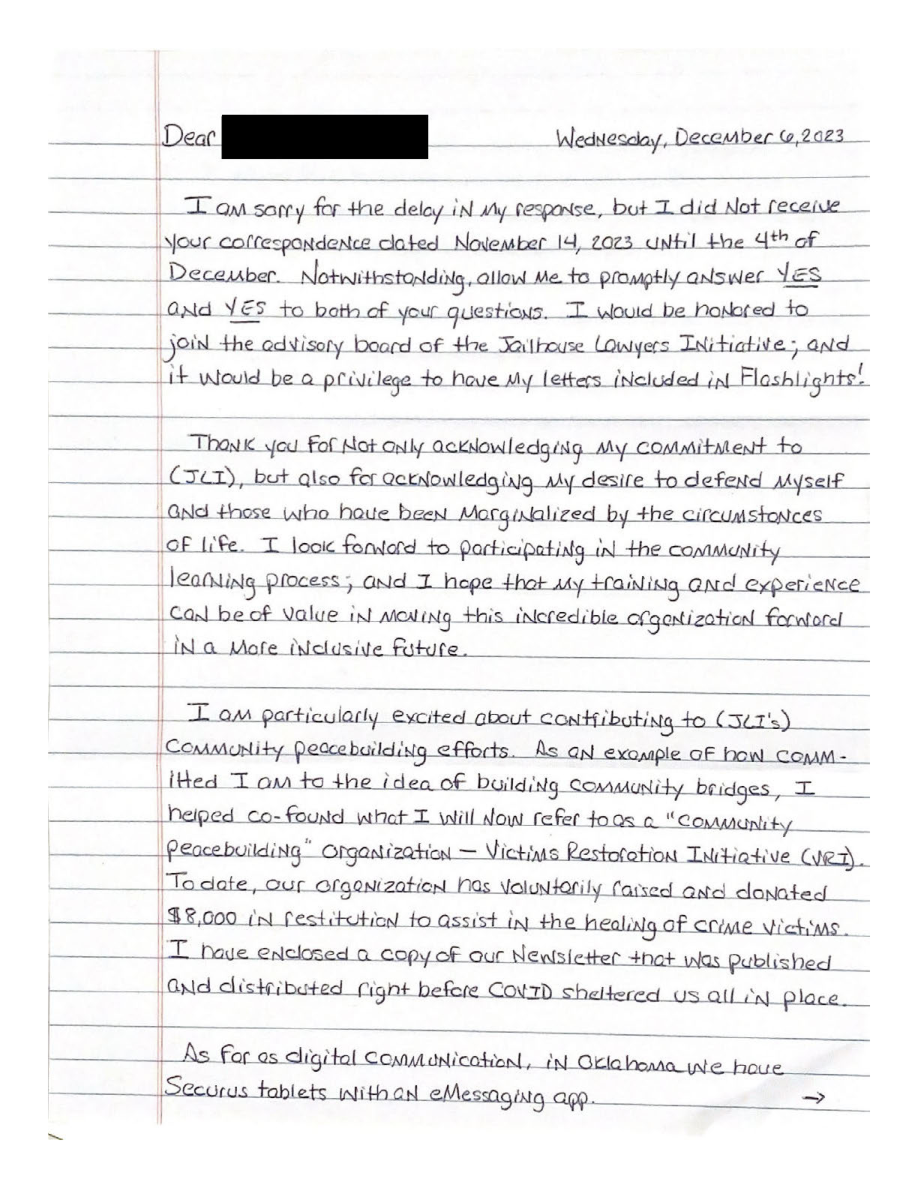 Dear
Wednesday, December 6, 2023
I am sorry for the delay in my response, but I did not receive
your correspondence dated November 14, 2023 until the 4th of
December. Notwithstanding, allow me to promptly answer YES
and YES to both of your questions. I would be honored to
join the advisory board of the Jailhouse Lawyers Initiative; and
it would be a privilege to have my letters included in Flashlights!
Thank you for not only acknowledging my commitment to
(JLI), but also for acknowledging my desire to defend myself
and those who have been marginalized by the circumstances
of life. I look forward to participating in the community
learning process; and I hope that my training and experience
can be of value in moving this incredible organization forward
in a more inclusive future.
I am particularly excited about contributing to (JLI's)
community peacebuilding efforts. As an example of how comm-
itted I am to the idea of building community bridges, I
helped co-found what I will now refer to as a "community
peacebuilding" organization — Victims Restoration Initiative (VRI).
To date, our organization has voluntarily raised and donated
$8,000 in restitution to assist in the healing of crime victims.
I have enclosed a copy of our Newsletter that was published
and distributed right before COVID sheltered us all in place.
As far as digital communication, in Oklahoma we have
Securus tablets with an eMessaging app. →